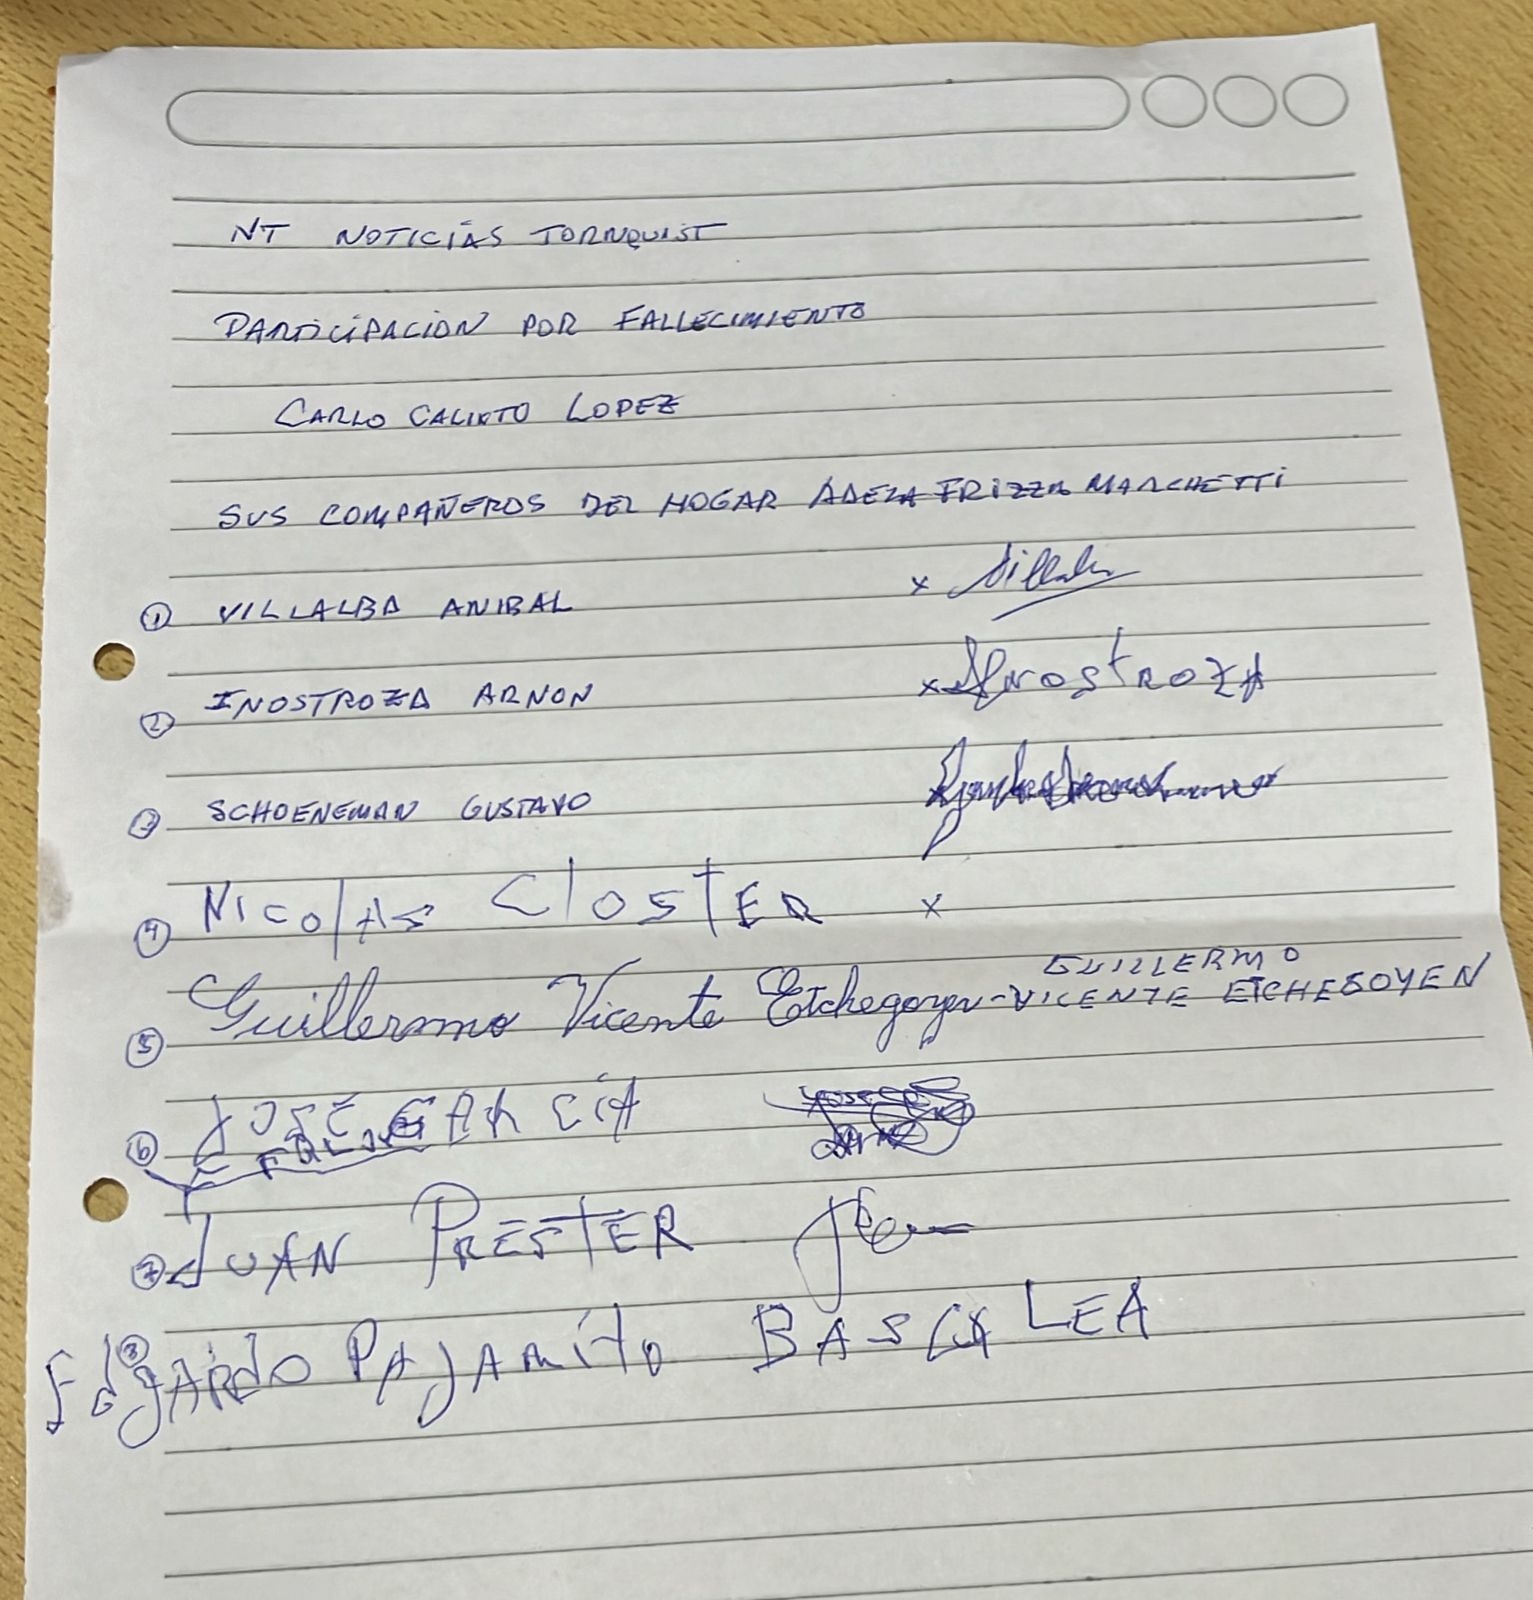 NT NOTICIAS TORNQUIST
PARTICIPACION POR FALLECIMIENTO
CARLO CALIXTO LOPEZ
SUS COMPAÑEROS DEL HOGAR ADELA FRIZZA MARCHETTI
① VILLALBA ANIBAL x
② INOSTROZA ARNON x INOSTROZA
③ SCHOENEMAN GUSTAVO x
④ NICOLAS CLOSTER x
⑤ Guillermo Vicente Etchegoyen - GUILLERMO VICENTE ETCHEGOYEN
⑥ JOSÉ GARCÍA
⑦ JUAN PRESTER
⑧ EDGARDO PAJAMITO BASCALEA